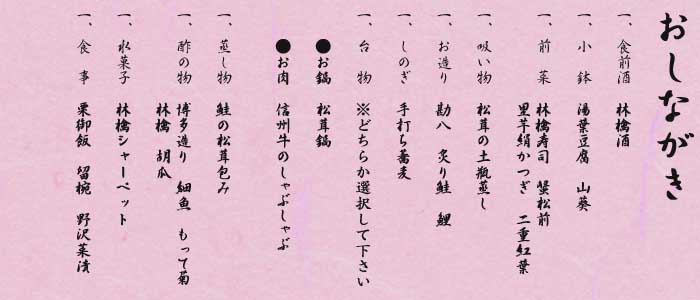 おしながき
一、食前酒　林檎酒
一、小　鉢　湯葉豆腐　山葵
一、前　菜　林檎寿司　蟹松前
里芋絹かつぎ　二重紅葉
一、吸い物　松茸の土瓶蒸し
一、お造り　勘八　炙り鮭　鯉
一、しのぎ　手打ち蕎麦
一、台　物　※どちらか選択して下さい
●お鍋　松茸鍋
●お肉　信州牛のしゃぶしゃぶ
一、蒸し物　鮭の松茸包み
一、酢の物　博多造り　細魚　もって菊
林檎　胡瓜
一、水菓子　林檎シャーベット
一、食　事　栗御飯　留椀　野沢菜漬